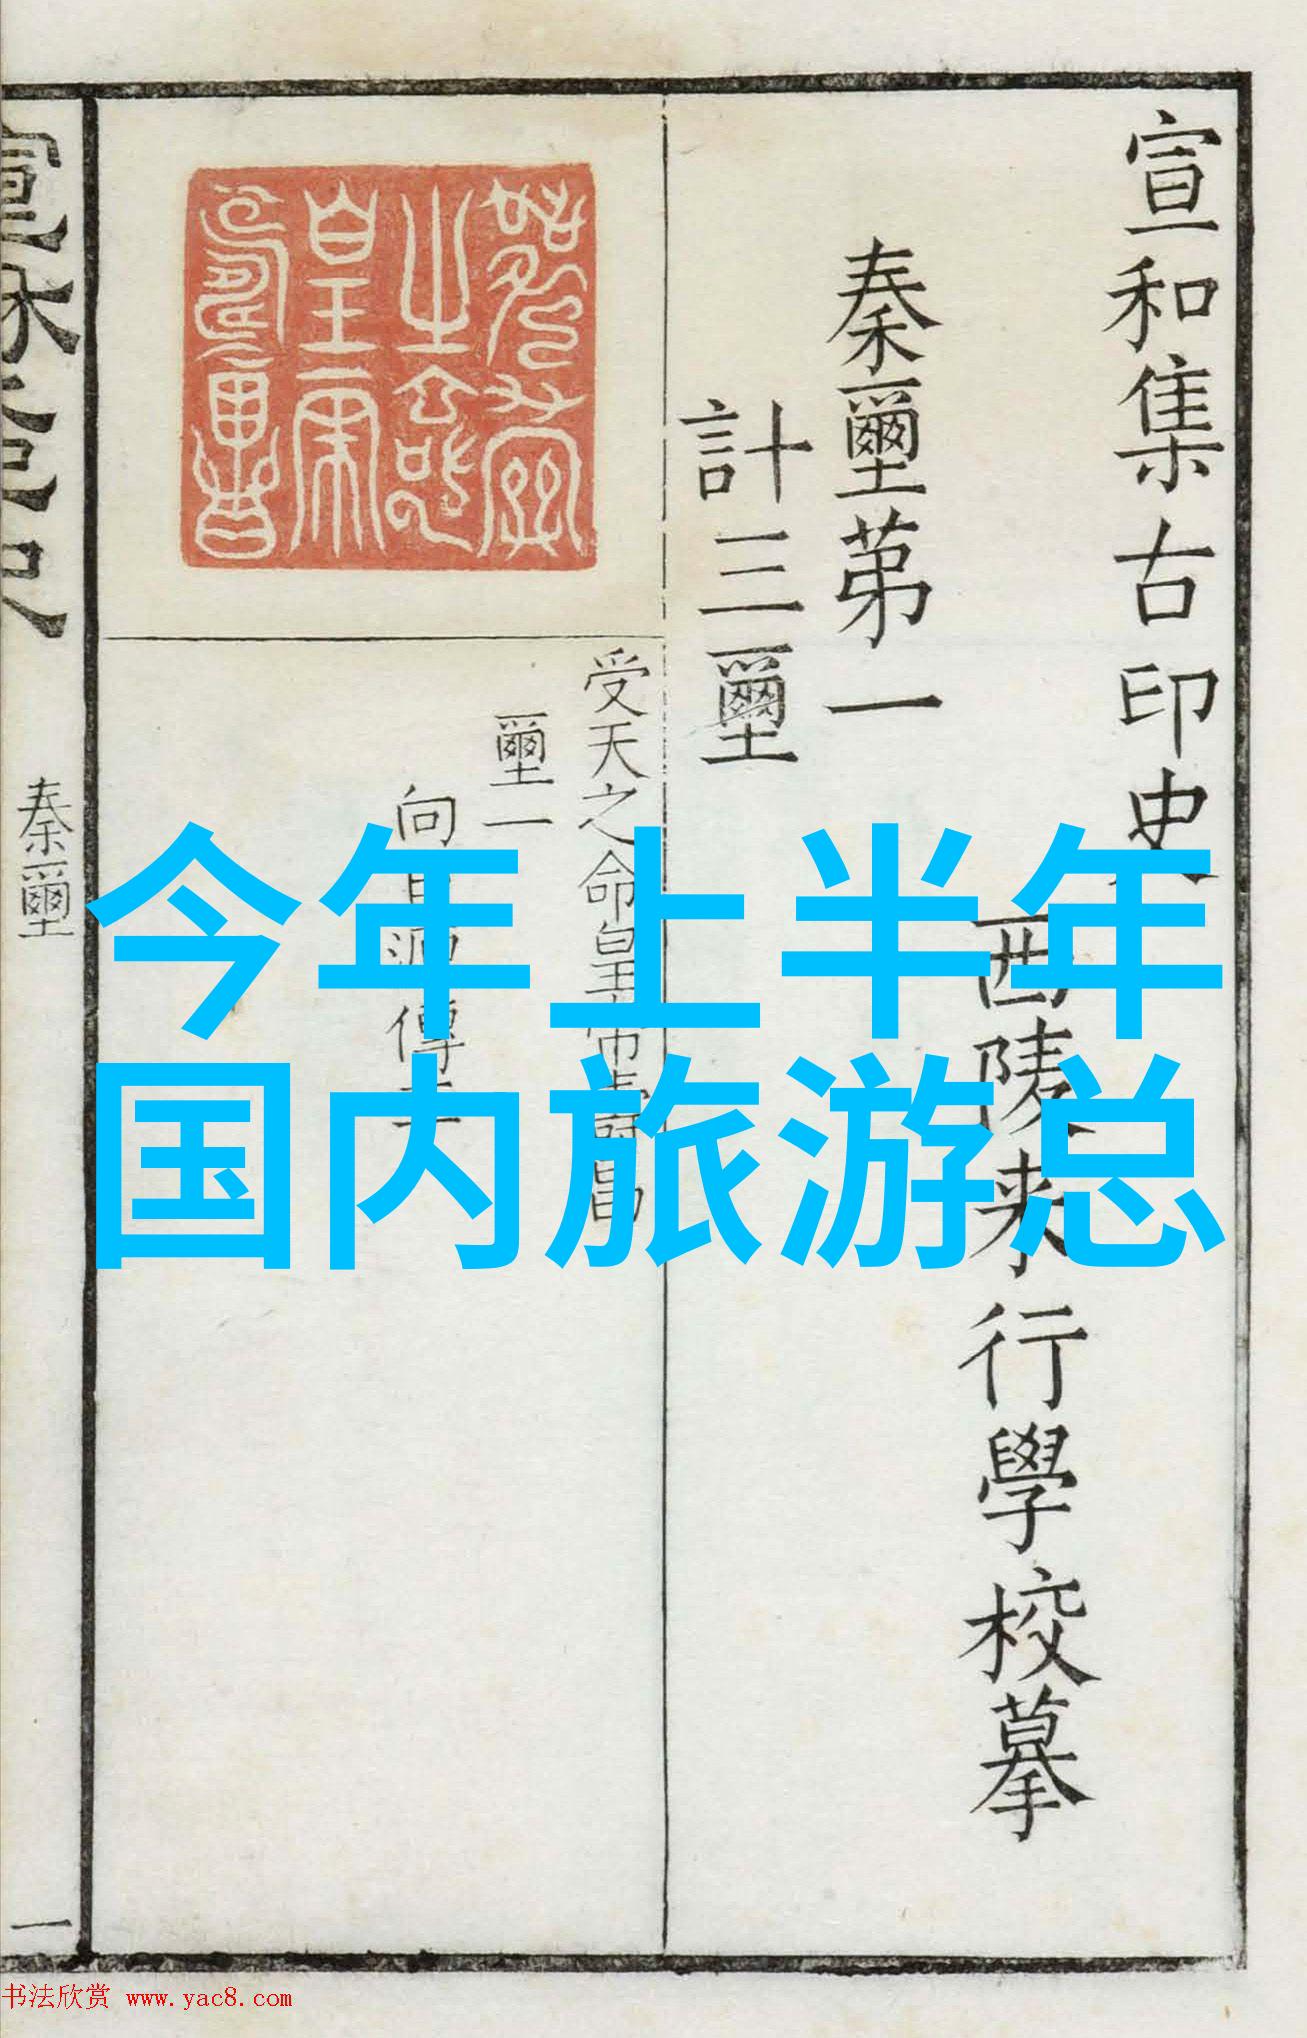 宣和集古印史
西陵来行學校摹
秦璽苐一
計三璽
受天之命皇帝壽昌
璽一
向巨源傳
秦璽
一
今年上半年
国内旅游总
书法欣赏 www.yac8.com